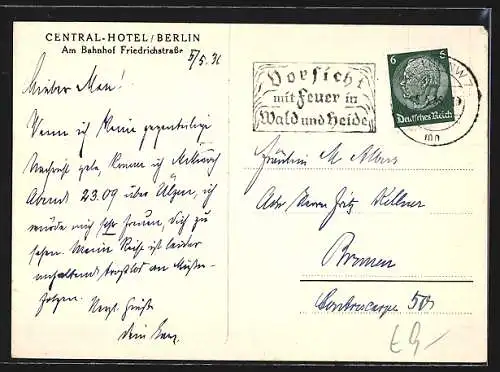 CENTRAL-HOTEL/BERLIN
Am Bahnhof Friedrichstraße
5/5. 36
Wenn ich keine gegenteilige
Nachricht gebe, komme ich Mittwoch
Abend 23.09 über Ülzen, ich
würde mich sehr freuen, Dich zu
sehen. Meine Reise ist leider
anhaltend trostlos an
Herzl. Grüße
Dein
Vorsicht
mit Feuer in
Wald und Heide
6 6
Deutsches Reich
Fräulein M. Albers
Adr. Herrn Fritz Kellner
Bremen
Contrescarpe 50